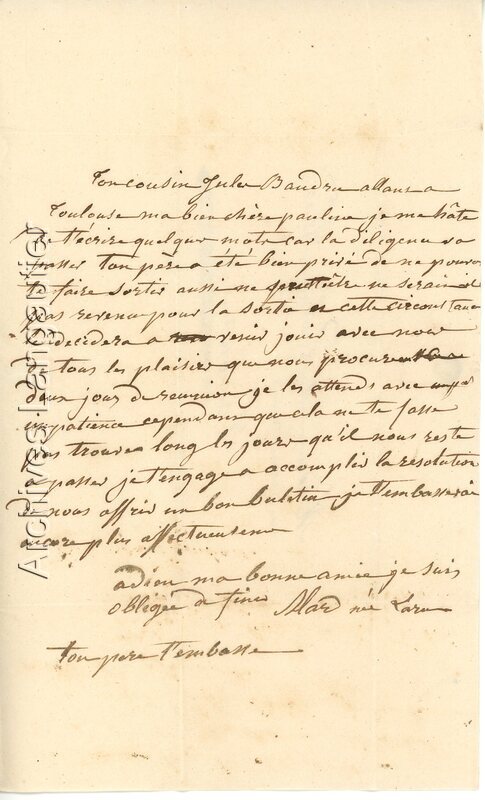 Ton cousin Jules Baudru allant a
Toulouse ma bien chère pauline je me hâte
de t'écrire quelque mots car la diligence va
passer ton père a été bien privé de ne pouvoir
te faire sortir aussi ne peuttêtre ne serait il
pas revenu pour la sortie cette circonstance
le decidera a venir jouir avec nous
de tous les plaisirs que nous procure
deux jour de reunion je les attends avec
impatience cependant que cela ne te fasse
pas trouver long les jours qu'il nous reste
a passer je t'engage a accomplir la resolution
nous offrir un bon buletin je t'embasserai
encore plus affectueusement
adieu ma bonne amie je suis
obligée de finir Mard née
ton pere t'embasse
Archives Largentier